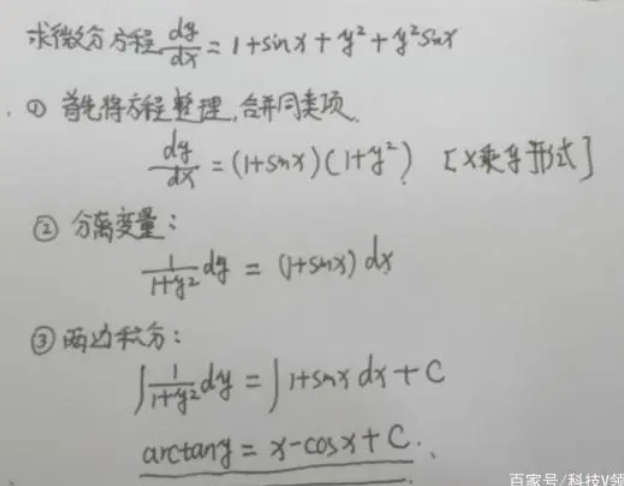 求微分方程 dy/dx = 1+sinx+y²+y²sinx
① 首先将方程整理,合并同类项.
dy/dx = (1+sinx)(1+y²) [x乘y形式]
② 分离变量:
1/(1+y²) dy = (1+sinx) dx
③ 两边积分:
∫ 1/(1+y²) dy = ∫ 1+sinx dx + C
arctany = x-cosx+C.
百家号/科技V领